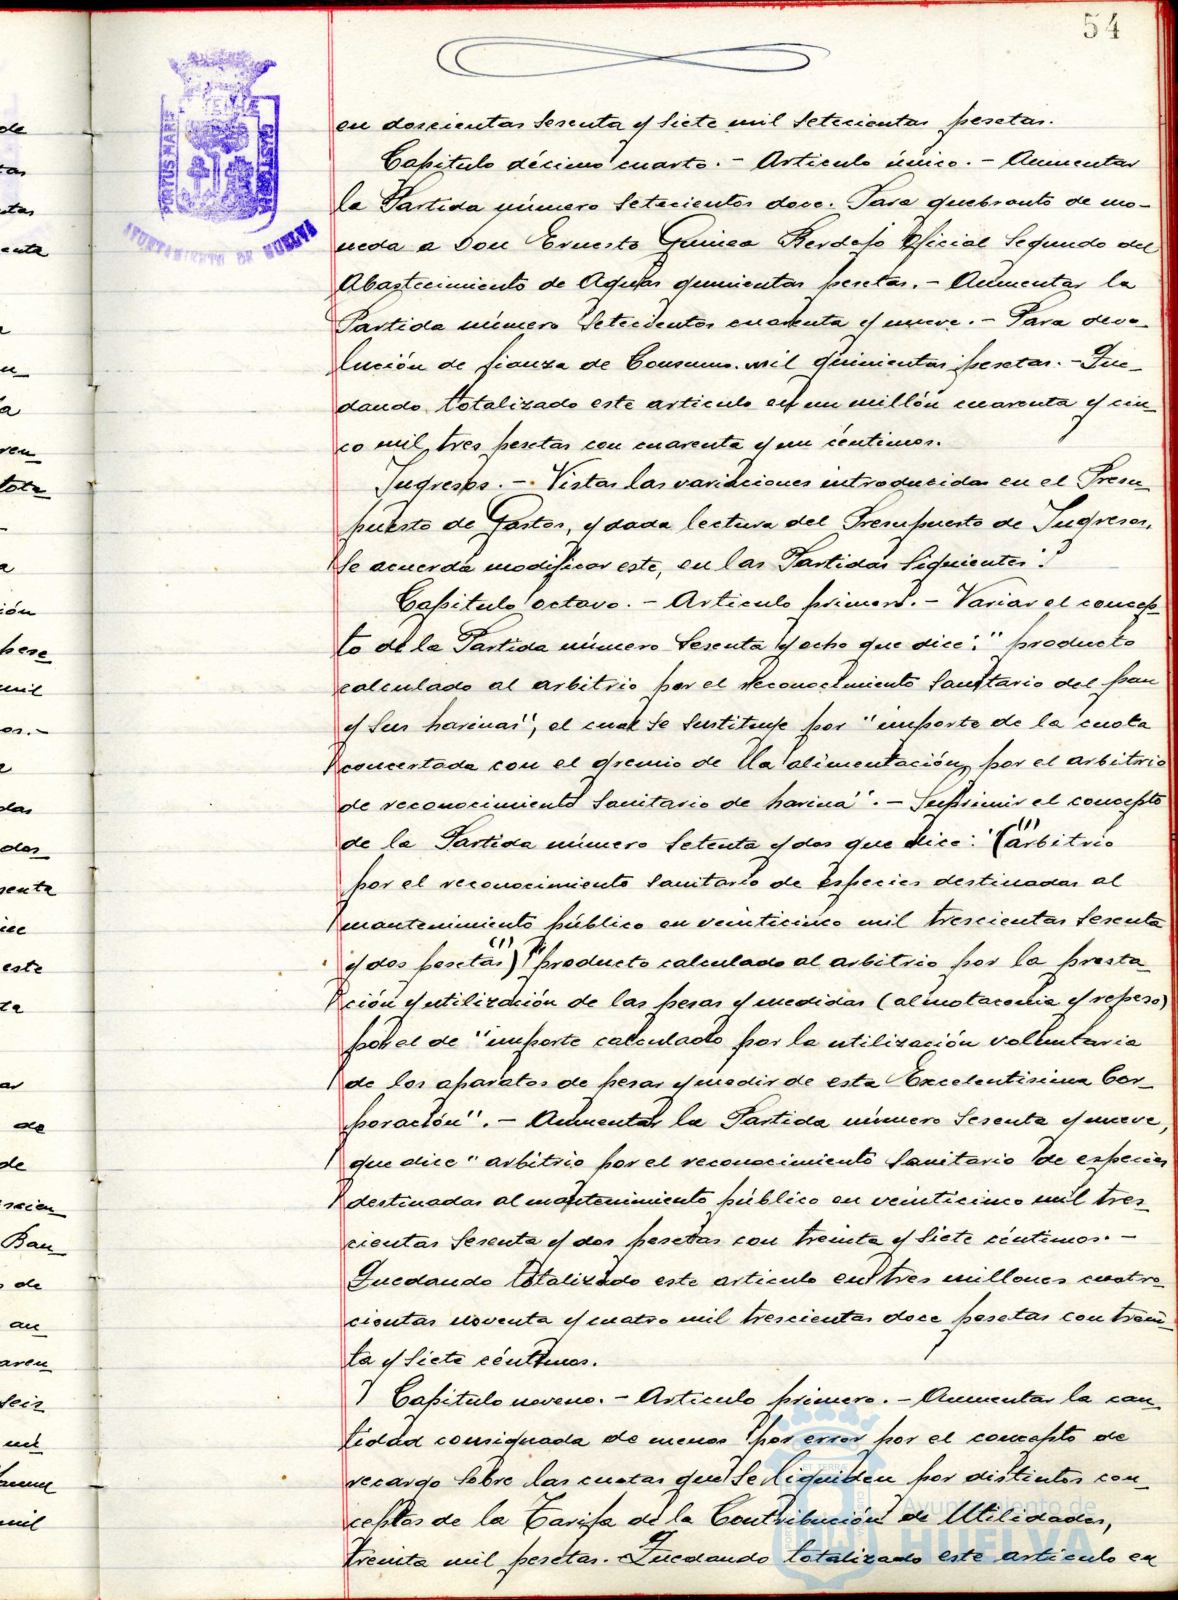 54
PORTUS MARIS ET TERRÆ CUSTODIA
AYUNTAMIENTO DE HUELVA
en doscientas sesenta y siete mil setecientas pesetas.
Capitulo décimo cuarto. - Articulo único. - Aumentar
la Partida número setecientos doce. Para quebranto de mo-
neda a Don Ernesto Guinea Berdejo Oficial Segundo del
Abastecimiento de Aguas quinientas pesetas. - Aumentar la
Partida número setecientos cuarenta y nueve. - Para devo-
lución de fianza de Consumo. mil quinientas pesetas. - Que-
dando totalizado este articulo en un millón cuarenta y cin-
co mil tres pesetas con cuarenta y un céntimos.
Ingresos. - Vistas las variaciones introducidas en el Presu-
puesto de Gastos, y dada lectura del Presupuesto de Ingresos,
se acuerda modificar este, en las Partidas siguientes:
Capitulo octavo. - Articulo primero. - Variar el concep-
to de la Partida número sesenta y ocho que dice: "producto
calculado al arbitrio por el reconocimiento sanitario del pan
y sus harinas", el cual se sustituye por "importe de la cuota
concertada con el gremio de la alimentación, por el arbitrio
de reconocimiento sanitario de harina". - Suprimir el concepto
de la Partida número setenta y dos que dice: "(arbitrio (1)
por el reconocimiento sanitario de especies destinadas al
mantenimiento público en veinticinco mil trescientas sesenta
y dos pesetas) (1) "producto calculado al arbitrio por la presta-
ción y utilización de las pesas y medidas (almotacenia y repeso)
por el de "importe calculado por la utilización voluntaria
de los aparatos de pesar y medir de esta Excelentisima Cor-
poración". - Aumentar la Partida número sesenta y nueve,
que dice "arbitrio por el reconocimiento sanitario de especies
destinadas al mantenimiento público en veinticinco mil tres-
cientas sesenta y dos pesetas con treinta y siete céntimos. -
Quedando totalizado este articulo en tres millones cuatro-
cientas noventa y cuatro mil trescientas doce pesetas con trein-
ta y siete céntimos.
Capitulo noveno. - Articulo primero. - Aumentar la can-
tidad consignada de menos por error por el concepto de
recargo sobre las cuotas que se liquiden por distintos con-
ceptos de la Tarifa de la Contribución de Utilidades,
treinta mil pesetas. Quedando totalizado este articulo en
Ayuntamiento de
HUELVA